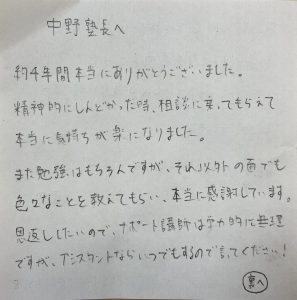 中野塾長へ
約4年間本当にありがとうございました。
精神的にしんどかった時、相談に乗ってもらえて
本当に気持ちが楽になりました。
また勉強はもちろんですが、それ以外の面でも
色々なことを教えてもらい、本当に感謝しています。
恩返ししたいので、サポート講師は学力的に無理
ですが、アシスタントならいつでもするので言ってください!
裏へ